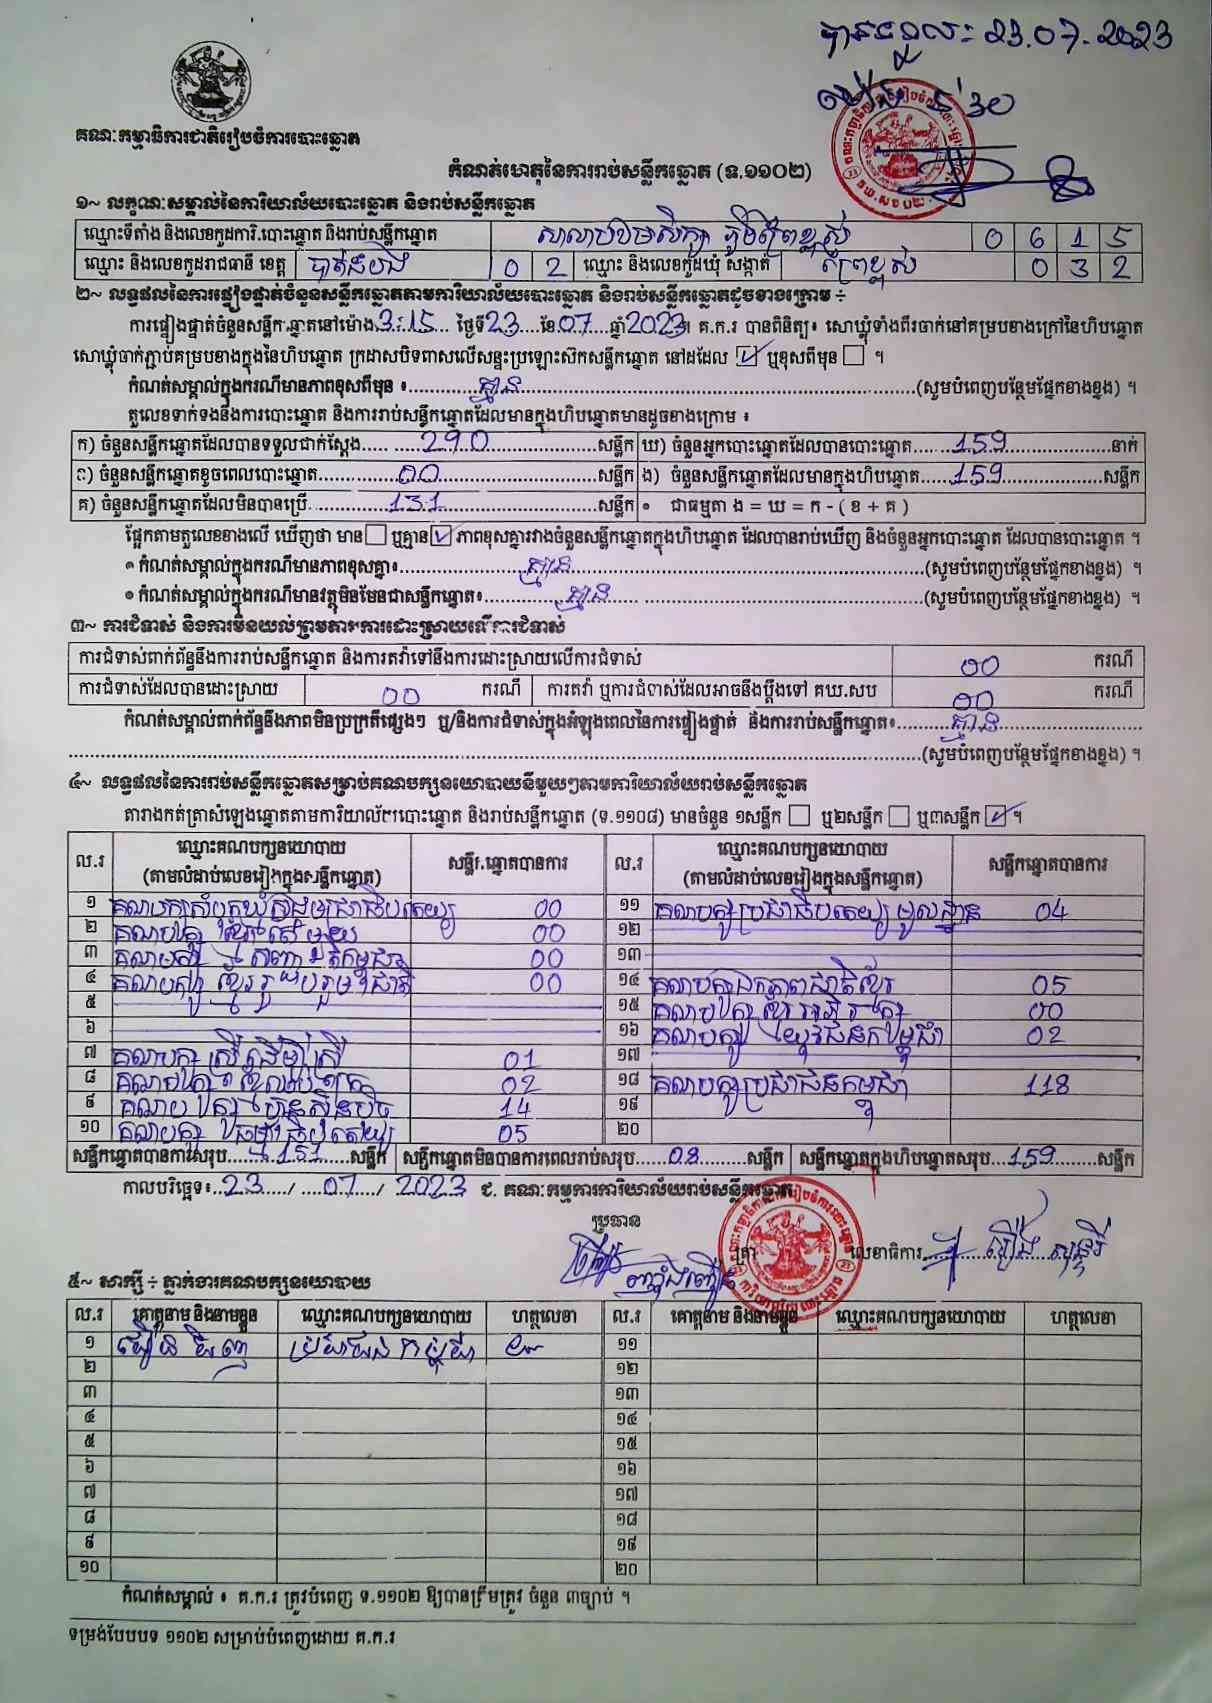 បានទទួល: 23.07.2023
គណៈកម្មាធិការជាតិរៀបចំការបោះឆ្នោត
កំណត់ហេតុនៃការរាប់សន្លឹកឆ្នោត (ទ.១១០២)
១~ លក្ខណៈសម្គាល់នៃការិយាល័យបោះឆ្នោត និងរាប់សន្លឹកឆ្នោត
ឈ្មោះទីតាំង និងលេខកូដការិ.បោះឆ្នោត និងរាប់សន្លឹកឆ្នោត 0 6 1 5
ឈ្មោះ និងលេខកូដរាជធានី ខេត្ត បាត់ដំបង 0 2 ឈ្មោះ និងលេខកូដឃុំ សង្កាត់ ព្រៃខ្ពស់ 0 3 2
២~ លទ្ធផលនៃការផ្ទៀងផ្ទាត់ចំនួនសន្លឹកឆ្នោតតាមការិយាល័យបោះឆ្នោត និងរាប់សន្លឹកឆ្នោតដូចខាងក្រោម ÷
ការផ្ទៀងផ្ទាត់ចំនួនសន្លឹកឆ្នោតនៅម៉ោង 3:15 ថ្ងៃទី 23 ខែ 07 ឆ្នាំ 2023។ គ.ក.រ បានពិនិត្យ៖ សោឃ្លុំទាំងពីរចាក់នៅគម្របខាងក្រៅនៃហិបឆ្នោត
សោឃ្លុំចាក់ភ្ជាប់គម្របខាងក្នុងនៃហិបឆ្នោត ក្រដាសបិទពាសលើសន្ទះប្រឡោះស៊កសន្លឹកឆ្នោត នៅដដែល ☑ ឬខុសពីមុន ☐ ។
កំណត់សម្គាល់ក្នុងករណីមានភាពខុសពីមុន ៖ គ្មាន (សូមបំពេញបន្ថែមផ្នែកខាងខ្នង) ។
តួលេខទាក់ទងនឹងការបោះឆ្នោត និងការរាប់សន្លឹកឆ្នោតដែលមានក្នុងហិបឆ្នោតមានដូចខាងក្រោម ៖
ក) ចំនួនសន្លឹកឆ្នោតដែលបានទទួលជាក់ស្តែង 290 សន្លឹក ឃ) ចំនួនអ្នកបោះឆ្នោតដែលបានបោះឆ្នោត 159 នាក់
ខ) ចំនួនសន្លឹកឆ្នោតខូចពេលបោះឆ្នោត 00 សន្លឹក ង) ចំនួនសន្លឹកឆ្នោតដែលមានក្នុងហិបឆ្នោត 159 សន្លឹក
គ) ចំនួនសន្លឹកឆ្នោតដែលមិនបានប្រើ 131 សន្លឹក • ជាធម្មតា ង = ឃ = ក - ( ខ + គ )
ផ្អែកតាមតួលេខខាងលើ ឃើញថា មាន ☐ ឬគ្មាន ☑ ភាពខុសគ្នារវាងចំនួនសន្លឹកឆ្នោតក្នុងហិបឆ្នោត ដែលបានរាប់ឃើញ និងចំនួនអ្នកបោះឆ្នោត ដែលបានបោះឆ្នោត ។
• កំណត់សម្គាល់ក្នុងករណីមានភាពខុសគ្នា៖ គ្មាន (សូមបំពេញបន្ថែមផ្នែកខាងខ្នង) ។
• កំណត់សម្គាល់ក្នុងករណីមានវត្ថុមិនមែនជាសន្លឹកឆ្នោត៖ គ្មាន (សូមបំពេញបន្ថែមផ្នែកខាងខ្នង) ។
៣~ ការជំទាស់ និងការមិនយល់ព្រមតាមការដោះស្រាយលើការជំទាស់
ការជំទាស់ពាក់ព័ន្ធនឹងការរាប់សន្លឹកឆ្នោត និងការតវ៉ាទៅនឹងការដោះស្រាយលើការជំទាស់ 00 ករណី
ការជំទាស់ដែលបានដោះស្រាយ 00 ករណី ការតវ៉ា ឬការជំទាស់ដែលអាចនឹងប្តឹងទៅ គឃ.សប 00 ករណី
កំណត់សម្គាល់ពាក់ព័ន្ធនឹងភាពមិនប្រក្រតីផ្សេងៗ ឬ/និងការជំទាស់ក្នុងអំឡុងពេលនៃការផ្ទៀងផ្ទាត់ និងការរាប់សន្លឹកឆ្នោត៖ គ្មាន
(សូមបំពេញបន្ថែមផ្នែកខាងខ្នង) ។
៤~ លទ្ធផលនៃការរាប់សន្លឹកឆ្នោតសម្រាប់គណបក្សនយោបាយនីមួយៗតាមការិយាល័យរាប់សន្លឹកឆ្នោត
តារាងកត់ត្រាសំឡេងឆ្នោតតាមការិយាល័យបោះឆ្នោត និងរាប់សន្លឹកឆ្នោត (ទ.១១០៨) មានចំនួន ១សន្លឹក ☐ ឬ២សន្លឹក ☐ ឬ៣សន្លឹក ☑ ។
ល.រ ឈ្មោះគណបក្សនយោបាយ (តាមលំដាប់លេខរៀងក្នុងសន្លឹកឆ្នោត) សន្លឹកឆ្នោតបានការ ល.រ ឈ្មោះគណបក្សនយោបាយ (តាមលំដាប់លេខរៀងក្នុងសន្លឹកឆ្នោត) សន្លឹកឆ្នោតបានការ
១ 00 ១១ គណបក្សប្រជាធិបតេយ្យមូលដ្ឋាន 04
២ គណបក្សខ្មែរតែមួយ 00 ១២
៣ 00 ១៣
៤ គណបក្សខ្មែររួបរួមជាតិ 00 ១៤ គណបក្សឯកភាពជាតិខ្មែរ 05
៥ ១៥ 00
៦ ១៦ គណបក្សយុវជនកម្ពុជា 02
៧ គណបក្សស្រីដើម្បីស្រី 01 ១៧
៨ 02 ១៨ គណបក្សប្រជាជនកម្ពុជា 118
៩ គណបក្សហ្វ៊ុនស៊ិនប៉ិច 14 ១៩
១០ គណបក្សធម្មាធិបតេយ្យ 05 ២០
សន្លឹកឆ្នោតបានការសរុប 151 សន្លឹក សន្លឹកឆ្នោតមិនបានការពេលរាប់សរុប 08 សន្លឹក សន្លឹកឆ្នោតក្នុងហិបឆ្នោតសរុប 159 សន្លឹក
កាលបរិច្ឆេទ៖ 23 / 07 / 2023 ជ. គណៈកម្មការការិយាល័យរាប់សន្លឹកឆ្នោត
ប្រធាន
ត្រា លេខាធិការ
៥~ សាក្សី ÷ ភ្នាក់ងារគណបក្សនយោបាយ
ល.រ គោត្តនាម និងនាមខ្លួន ឈ្មោះគណបក្សនយោបាយ ហត្ថលេខា ល.រ គោត្តនាម និងនាមខ្លួន ឈ្មោះគណបក្សនយោបាយ ហត្ថលេខា
១ ប្រជាជនកម្ពុជា ១១
២ ១២
៣ ១៣
៤ ១៤
៥ ១៥
៦ ១៦
៧ ១៧
៨ ១៨
៩ ១៩
១០ ២០
កំណត់សម្គាល់ ៖ គ.ក.រ ត្រូវបំពេញ ទ.១១០២ ឱ្យបានត្រឹមត្រូវ ចំនួន ៣ច្បាប់ ។
ទម្រង់បែបបទ ១១០២ សម្រាប់បំពេញដោយ គ.ក.រ